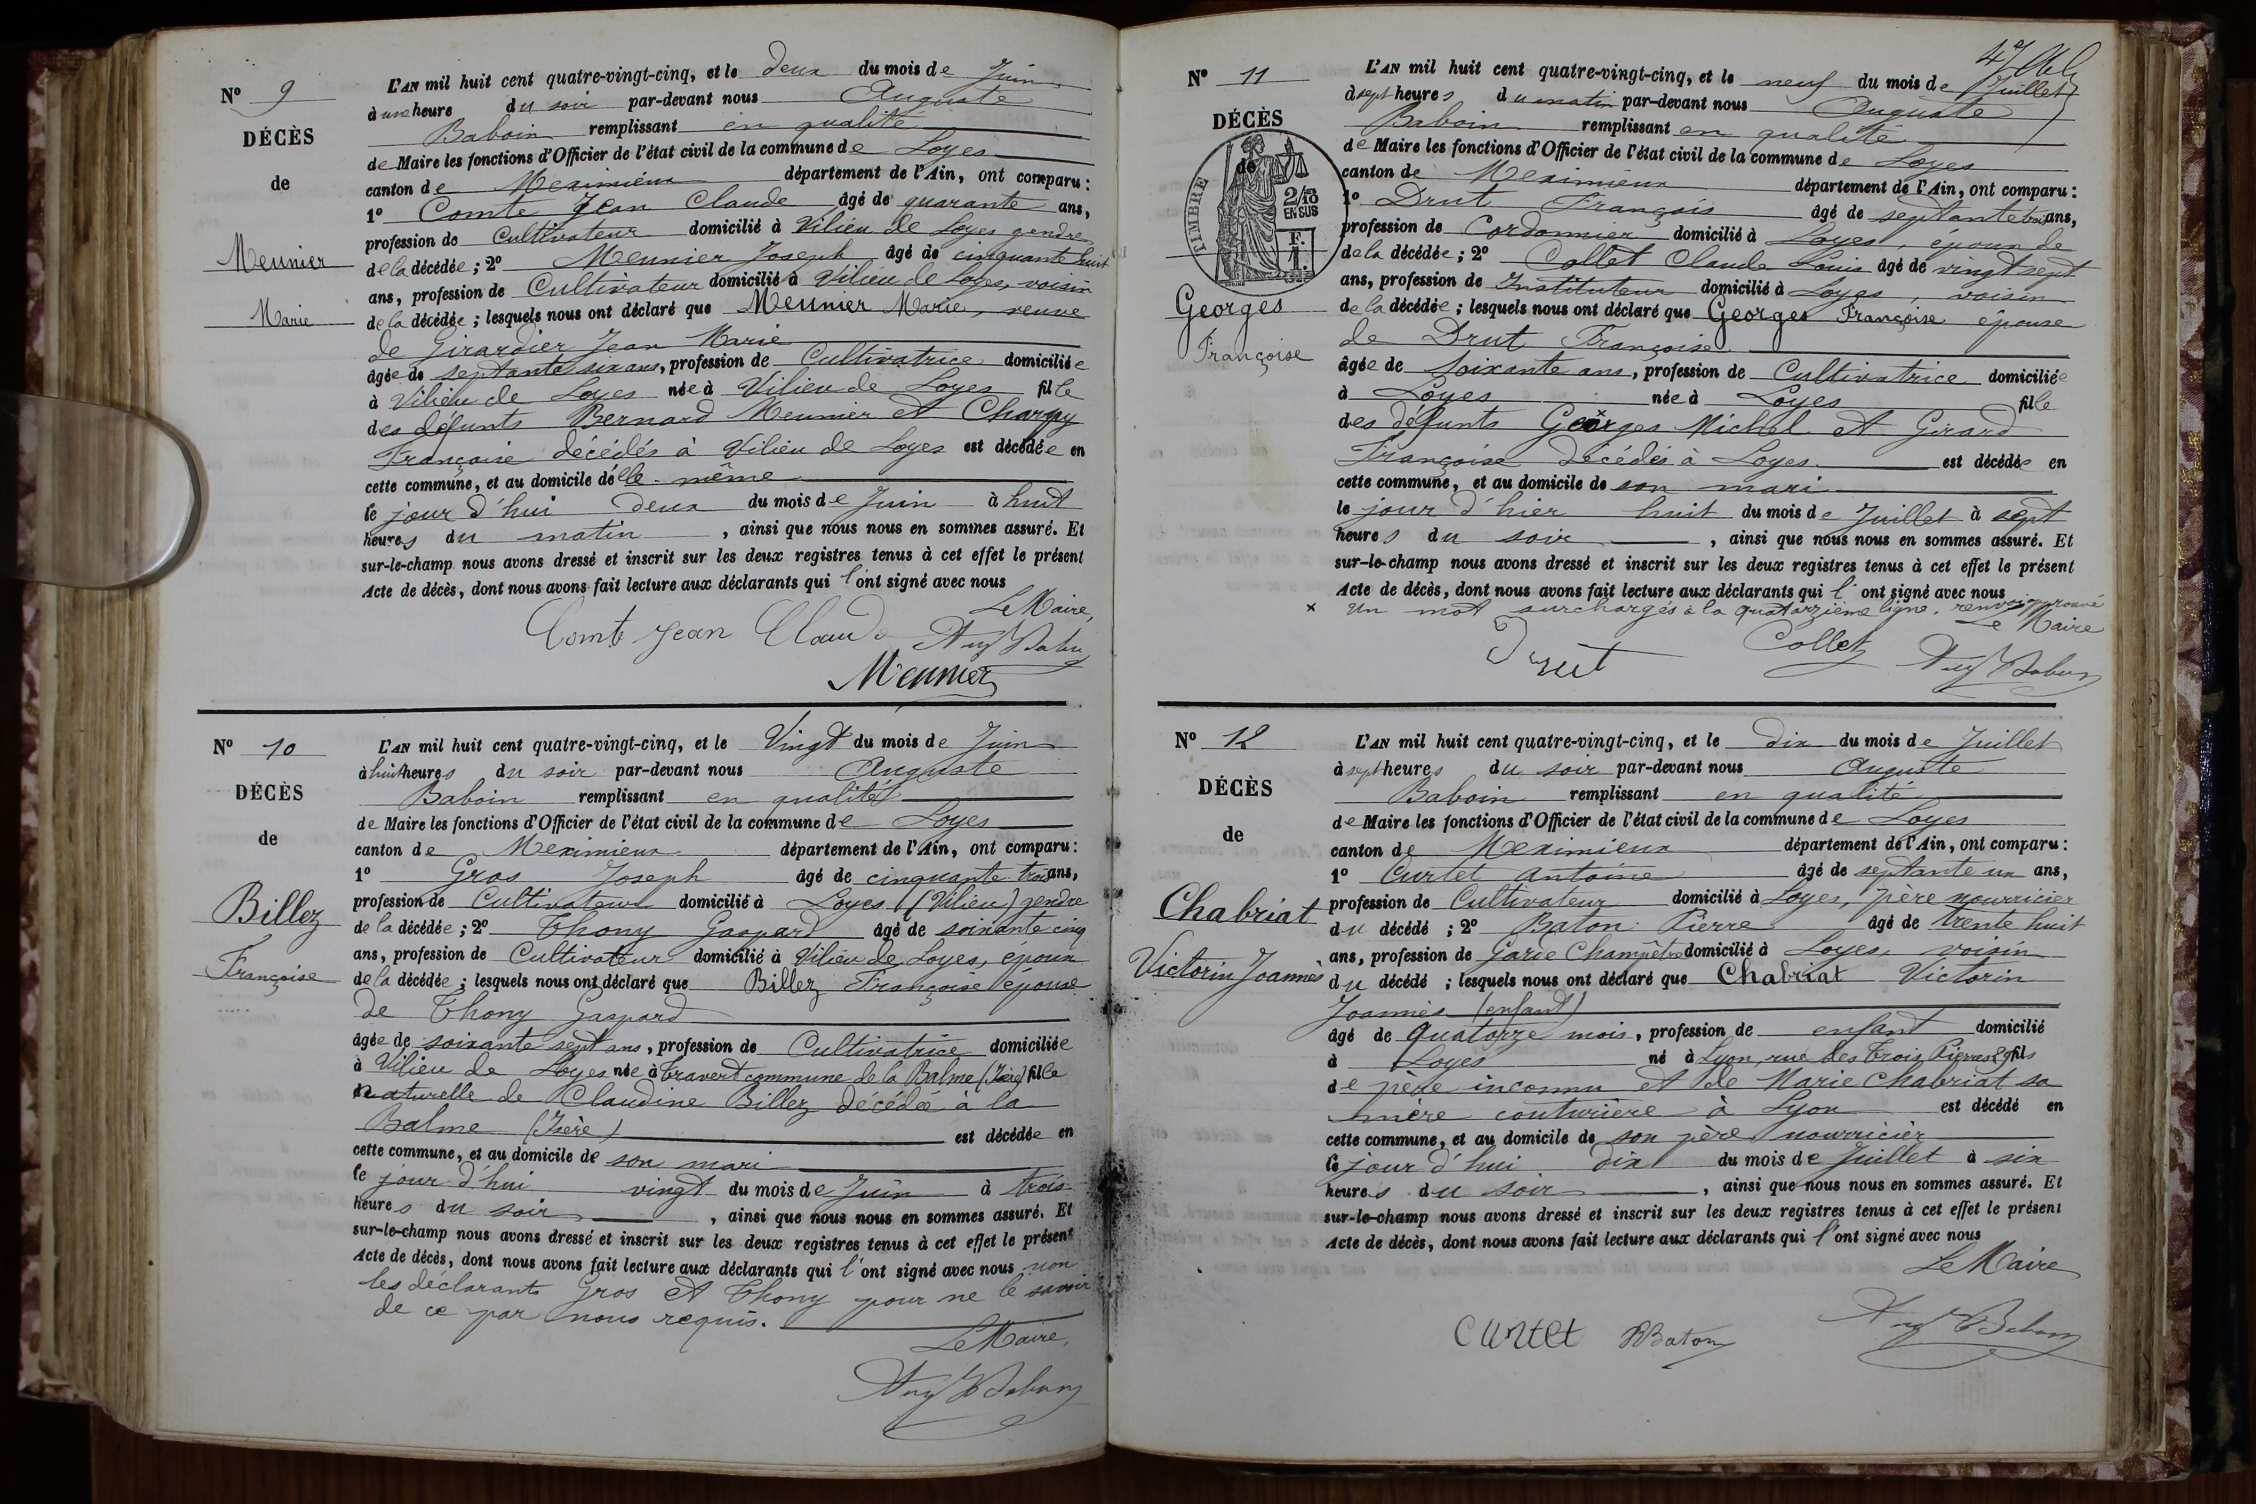 N° 9
DÉCÈS
de
Meunier
Marie
L'AN mil huit cent quatre-vingt-cinq, et le deux du mois de Juin
à une heure du soir par-devant nous Auguste
Baboin remplissant en qualité
de Maire les fonctions d'Officier de l'état civil de la commune de Loyes
canton de Meximieux département de l'Ain, ont comparu :
1° Comte Jean Claude âgé de quarante ans,
profession de Cultivateur domicilié à Vilieu de Loyes gendre
de la décédée ; 2° Meunier Joseph âgé de cinquante huit
ans, profession de Cultivateur domicilié à Vilieu de Loyes, voisin
de la décédée ; lesquels nous ont déclaré que Meunier Marie, veuve
de Girardier Jean Marie
âgée de septante six ans, profession de Cultivatrice domiciliée
à Vilieu de Loyes née à Vilieu de Loyes fille
des défunts Bernard Meunier et Chargy
Françoise décédés à Vilieu de Loyes est décédée en
cette commune, et au domicile d'elle-même
le jour d'hui deux du mois de Juin à huit
heures du matin, ainsi que nous nous en sommes assuré. Et
sur-le-champ nous avons dressé et inscrit sur les deux registres tenus à cet effet le présent
Acte de décès, dont nous avons fait lecture aux déclarants qui l'ont signé avec nous
Le Maire,
Comte Jean Claude Aug Baboin
Meunier
N° 10
DÉCÈS
de
Billez
Françoise
L'AN mil huit cent quatre-vingt-cinq, et le Vingt du mois de Juin
à huit heures du soir par-devant nous Auguste
Baboin remplissant en qualité
de Maire les fonctions d'Officier de l'état civil de la commune de Loyes
canton de Meximieux département de l'Ain, ont comparu :
1° Gros Joseph âgé de cinquante trois ans,
profession de Cultivateur domicilié à Loyes (Vilieu) gendre
de la décédée ; 2° Thony Gaspard âgé de soixante cinq
ans, profession de Cultivateur domicilié à Vilieu de Loyes, époux
de la décédée ; lesquels nous ont déclaré que Billez Françoise épouse
de Thony Gaspard
âgée de soixante sept ans, profession de Cultivatrice domiciliée
à Vilieu de Loyes née à Travert commune de la Balme (Isère) fille
naturelle de Claudine Billez décédée à la
Balme (Isère) est décédée en
cette commune, et au domicile de son mari
le jour d'hui vingt du mois de Juin à trois
heures du soir, ainsi que nous nous en sommes assuré. Et
sur-le-champ nous avons dressé et inscrit sur les deux registres tenus à cet effet le présent
Acte de décès, dont nous avons fait lecture aux déclarants qui l'ont signé avec nous non
les déclarants Gros et Thony pour ne le savoir
de ce par nous requis.
Le Maire,
Aug Baboin
47
N° 11
DÉCÈS
de
TIMBRE
2/10
EN SUS
F.
1.
Georges
Françoise
L'AN mil huit cent quatre-vingt-cinq, et le neuf du mois de Juillet
à sept heures du matin par-devant nous Auguste
Baboin remplissant en qualité
de Maire les fonctions d'Officier de l'état civil de la commune de Loyes
canton de Meximieux département de l'Ain, ont comparu :
1° Drut François âgé de septante trois ans,
profession de Cordonnier domicilié à Loyes époux de
de la décédée ; 2° Collet Claude Louis âgé de vingt sept
ans, profession de Instituteur domicilié à Loyes, voisin
de la décédée ; lesquels nous ont déclaré que Georges Françoise épouse
de Drut Françoise
âgée de soixante ans, profession de Cultivatrice domiciliée
à Loyes née à Loyes fille
des défunts Georges Michel et Girard
Françoise décédés à Loyes est décédée en
cette commune, et au domicile de son mari
le jour d'hier huit du mois de Juillet à sept
heures du soir, ainsi que nous nous en sommes assuré. Et
sur-le-champ nous avons dressé et inscrit sur les deux registres tenus à cet effet le présent
Acte de décès, dont nous avons fait lecture aux déclarants qui l'ont signé avec nous
x Un mot surchargés à la quatorzième ligne. renvoi approuvé
Le Maire
Drut Collet Aug Baboin
N° 12
DÉCÈS
de
Chabriat
Victorin Joannès
L'AN mil huit cent quatre-vingt-cinq, et le dix du mois de Juillet
à sept heures du soir par-devant nous Auguste
Baboin remplissant en qualité
de Maire les fonctions d'Officier de l'état civil de la commune de Loyes
canton de Meximieux département de l'Ain, ont comparu :
1° Curtet Antoine âgé de septante un ans,
profession de Cultivateur domicilié à Loyes, père nourricier
du décédé ; 2° Baton Pierre âgé de trente huit
ans, profession de Garde Champêtre domicilié à Loyes, voisin
du décédé ; lesquels nous ont déclaré que Chabriat Victorin
Joannès (enfant)
âgé de quatorze mois, profession de enfant domicilié
à Loyes né à Lyon, rue des Trois Pierres 29 fils
de père inconnu et de Marie Chabriat sa
mère couturière à Lyon est décédé en
cette commune, et au domicile de son père nourricier
le jour d'hui dix du mois de Juillet à six
heures du soir, ainsi que nous nous en sommes assuré. Et
sur-le-champ nous avons dressé et inscrit sur les deux registres tenus à cet effet le présent
Acte de décès, dont nous avons fait lecture aux déclarants qui l'ont signé avec nous
Le Maire
Curtet PBaton Aug Baboin